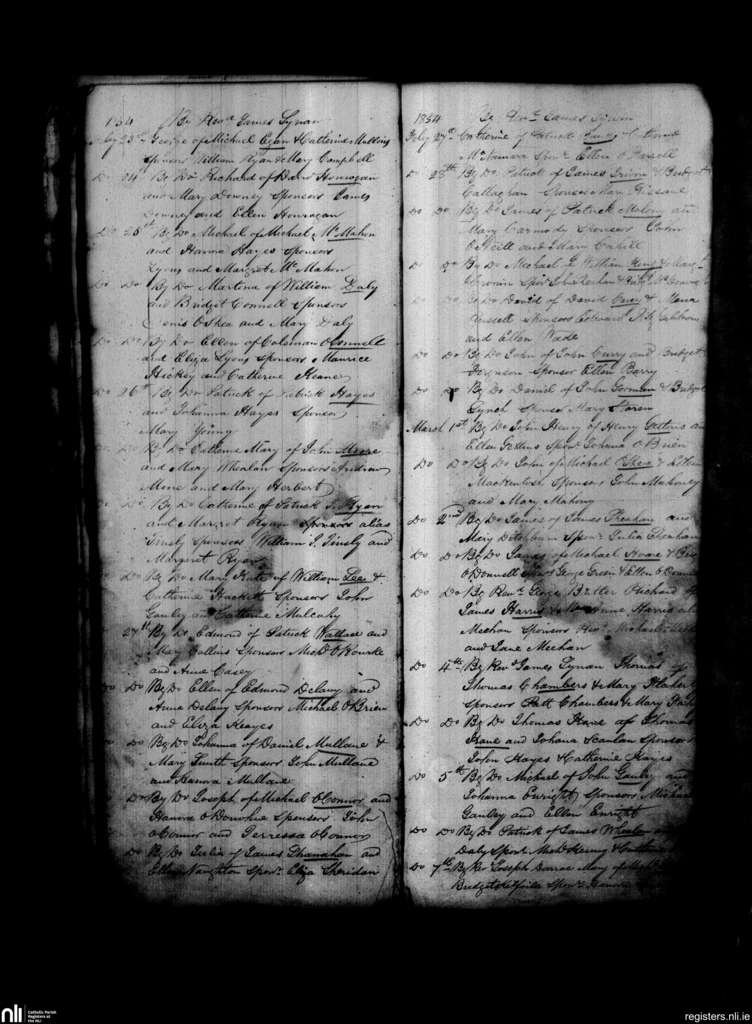 1834 By Revd James Synan
Feby 23rd George of Michael Egan & Catherine Mullins
Sponsors William Ryan & Mary Campbell
Do 24 By Do Richard of Danl Hourogan
and Mary Downey Sponsors James
Downey and Ellen Hourogan
Do 25th By Do Michael of Michael McMahon
and Hanna Hayes Sponsors
Lyons and Margret McMahon
Do Do By Do Martina of William Daly
and Bridget Connell Sponsors
Denis OShea and Mary Daly
Do Do By Do Ellen of Coleman OConnell
and Eliza Lyons Sponsors Maurice
Hickey and Catherine Keane
Do 26th By Do Patrick of Patrick Hayes
and Johanna Hayes Sponsor
Mary Young
By Do Catherine Mary of John Moore
and Mary Whealan Sponsors Andrew
Moore and Mary Herbert
Do By Do Catherine of Patrick J. Ryan
and Margret Ryan Sponsors alias
Tinsly Sponsors William J. Tinsly and
Margaret Ryan
Do By Do Mary Kate of William Lee &
Catherine Hackett Sponsors John
Ganley and Catherine Mulcahy
27th By Do Edmond of Patrick Wallace and
Mary Collins Sponsors Michl ORourke
and Anne Casey
Do By Do Ellen of Edmond Delany and
Anne Delany Sponsors Michael OBrien
and Eliza Heayes
Do By Do Johanna of Daniel Mullane &
Mary Smith Sponsors John Mullane
and Hanora Mullane
Do By Do Joseph of Michael OConnor and
Hanora ODonohue Sponsors John
OConnor and Terressa OConnor
Do By Do Julia of James Shanahan and
Ellen Naughton Sponr Eliza Sheridan
1834 By Revd James Synan
Feby 27th Catherine of Patrick & Catherine
McNamara Sponr Ellen OFarrell
Do 28th By Do Patrick of James & Bridget
Callaghan Sponsor Mary Kissane
Do Do By Do James of Patrick Malony and
Mary Carmody Sponsors John
ONeill and Mary Cahill
Do Do By Do Michael of William &
Cronin Sponr
Do By Do David of David &
Russell Sponsors Edward Fitzgibbon
and Ellen Wade
Do Do By Do John of John Curry and Bridget
Sponsor Ellen Barry
Do Do By Do Daniel of John Gorman & Bridget
Lynch Sponsor Mary
March 1st By Do John Henry of Henry Gettins and
Ellen Gettins Sponr Johana OBrien
Do Do By Do John of Michael OShea & Cathrn
Mackintosh Sponsors John Mahony
and Mary Mahony
Do 2nd By Do James of James Sheahan and
Mary Sponr Julia Sheahan
Do Do By Do James of Michael Hoare &
ODonnell Sponrs George Green & Ellen ODonnell
Do Do By Revd George Butler Richard of
James Harris & Anne Harris
Meehan Sponsors Revd Michael
and Jane Meehan
Do 4th By Revd James Synan Thomas of
Thomas Chambers & Mary Flaherty
Sponsors Patt Chambers & Mary
Do Do By Do Thomas Kane of Thomas
Kane and Johana Scanlan Sponsors
John Hayes & Catherine Hayes
Do 5th By Do Michael of John Ganley and
Johanna Enright Sponsors Michael
Ganley and Ellen Enright
Do Do By Do Patrick of James Whealan
Daly Sponr Michl Henry &
Do 7th By Revd Joseph Mary of
Bridget Sponr Hanora
nli
Catholic Parish
Registers at
the NLI
registers.nli.ie